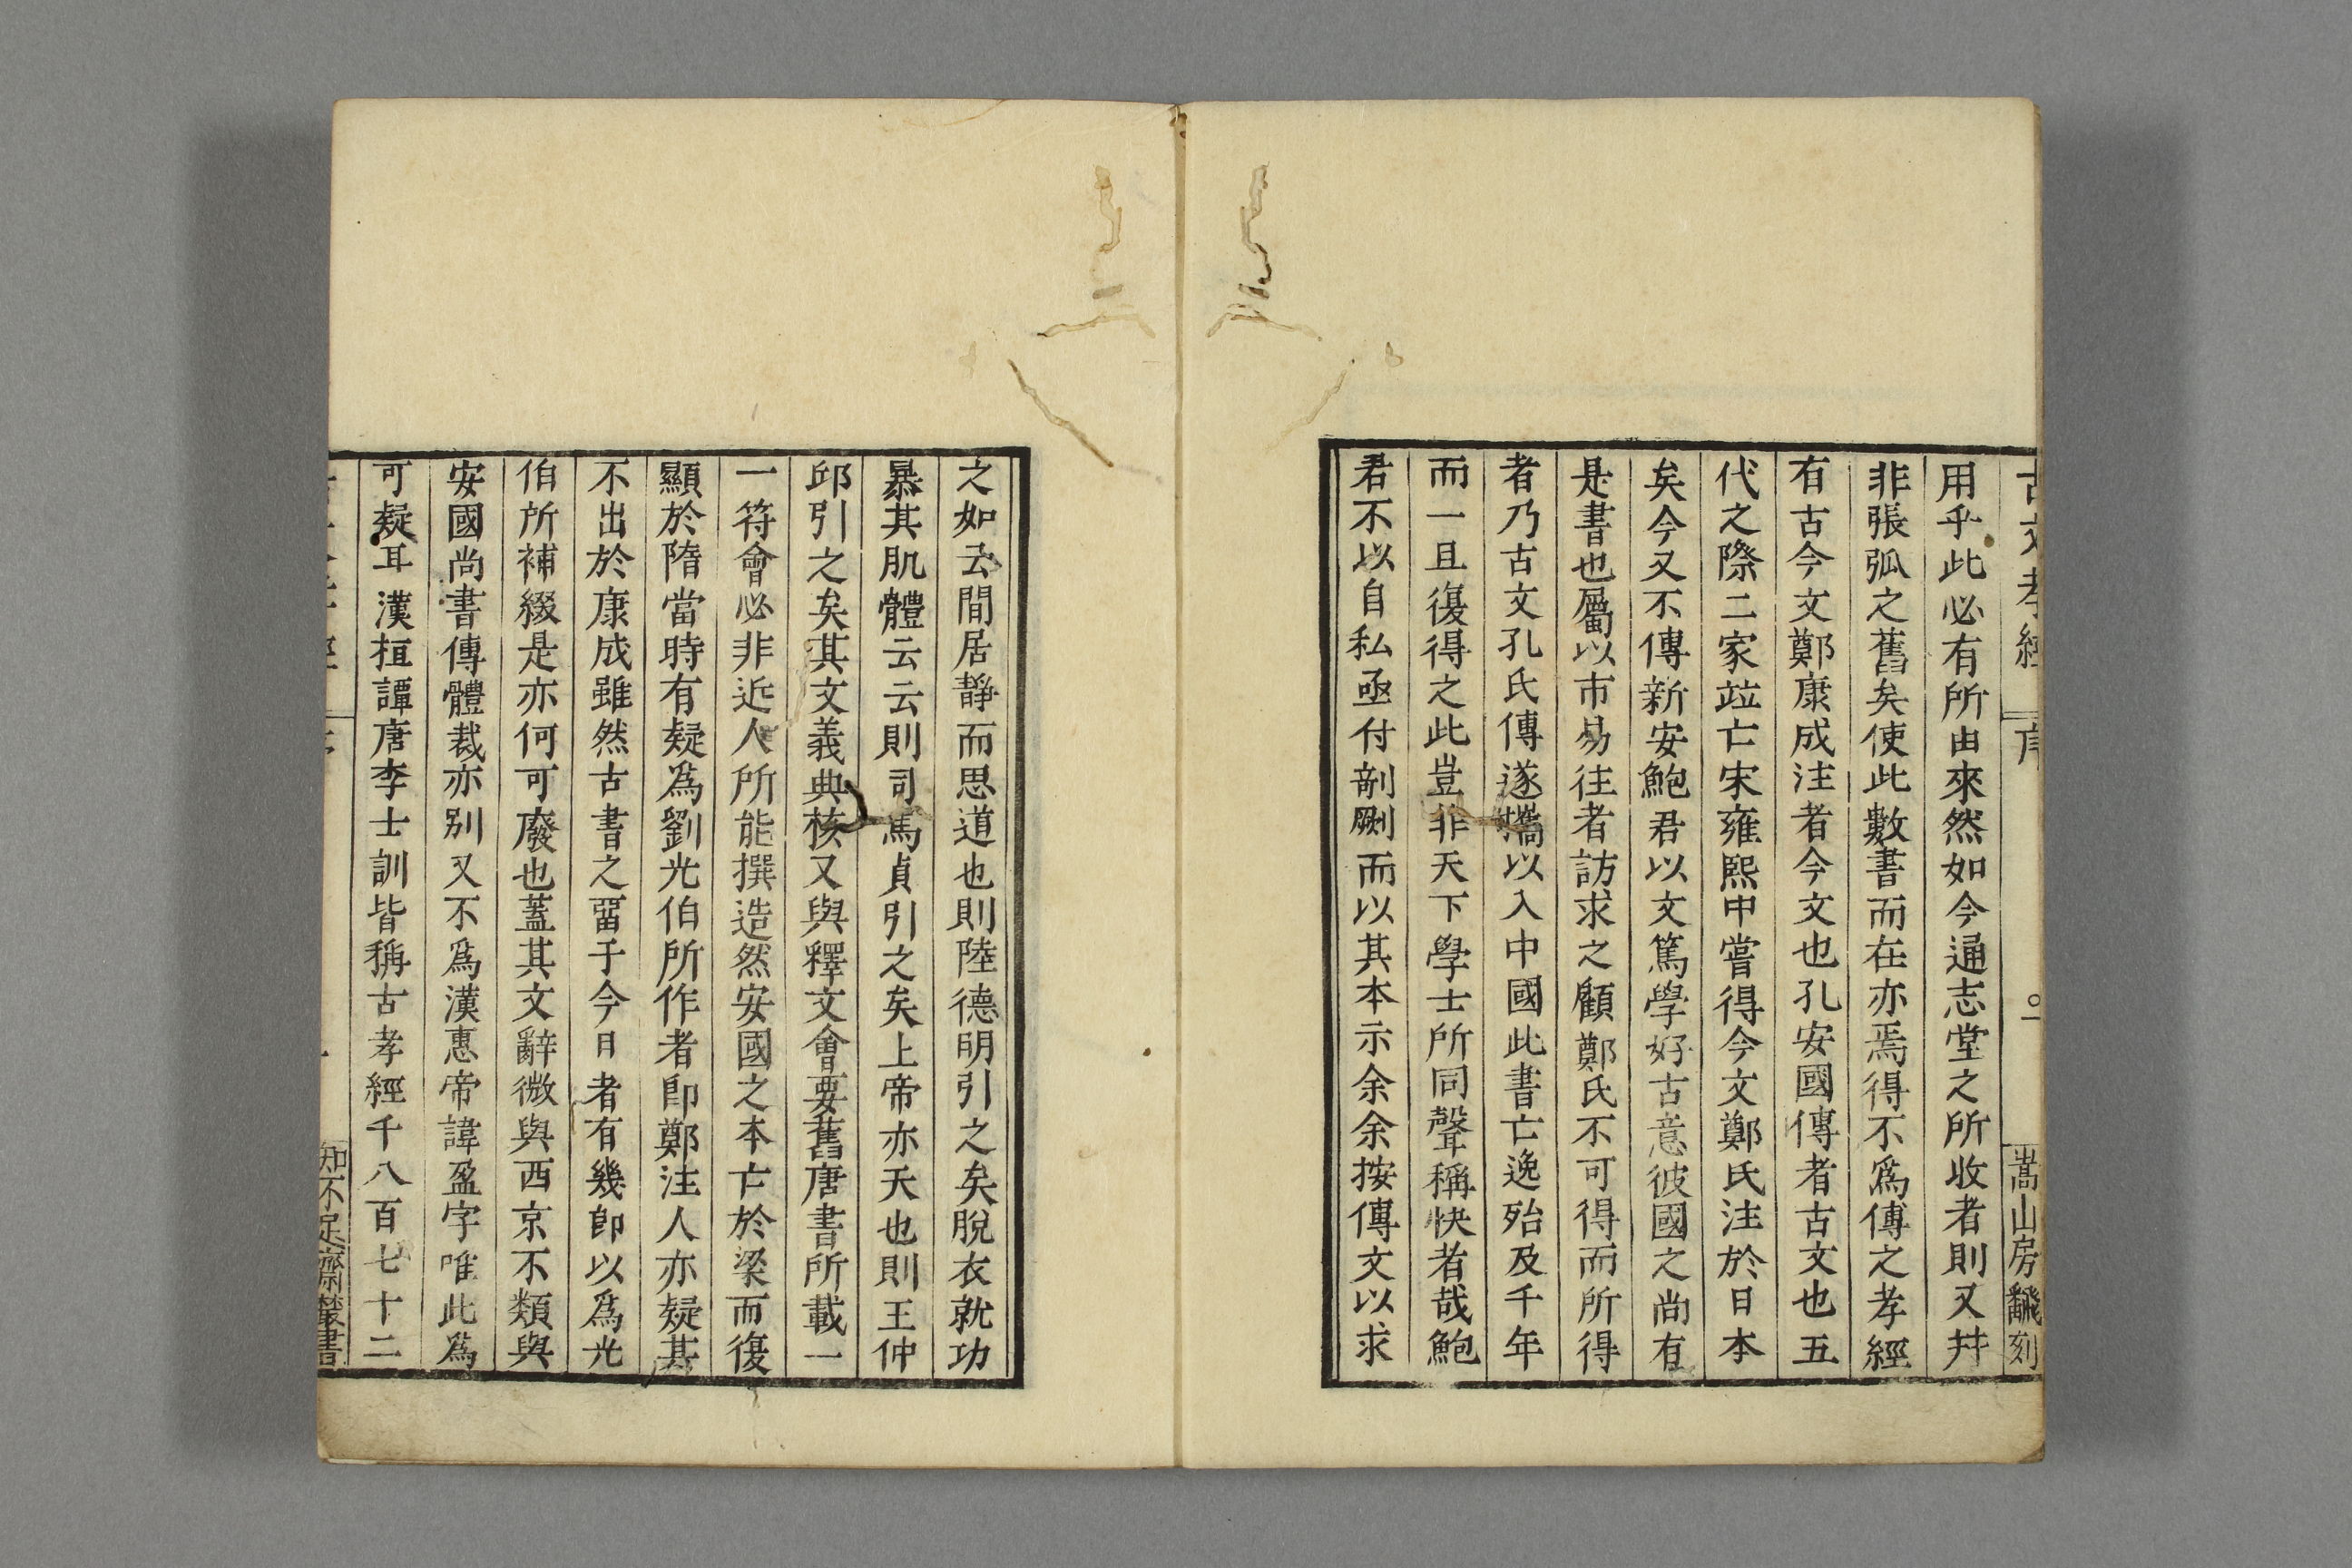 古文孝經
序
嵩山房飜刻
用乎此必有所由來然如今通志堂之所收者則又幷
非張弧之舊矣使此數書而在亦焉得不爲傅之孝經
有古今文鄭康成注者今文也孔安國傳者古文也五
代之際二家竝亡宋雍熙中嘗得今文鄭氏注於日本
矣今又不傳新安鮑君以文篤學好古意彼國之尚有
是書也屬以市易往者訪求之顧鄭氏不可得而所得
者乃古文孔氏傳遂攜以入中國此書亡逸殆及千年
而一旦復得之此豈非天下學士所同聲稱快者哉鮑
君不以自私亟付剞劂而以其本示余余按傳文以求
之如云間居靜而思道也則陸德明引之矣脫衣就功
暴其肌體云云則司馬貞引之矣上帝亦天也則王仲
邱引之矣其文義典核又與釋文會要舊唐書所載一
一符會必非近人所能撰造然安國之本亡於梁而復
顯於隋當時有疑爲劉光伯所作者卽鄭注人亦疑其
不出於康成雖然古書之畱于今日者有幾卽以爲光
伯所補綴是亦何可廢也蓋其文辭微與西京不類與
安國尚書傳體裁亦別又不爲漢惠帝諱盈字唯此爲
可疑耳漢桓譚唐李士訓皆稱古孝經千八百七十二
知不足齋叢書